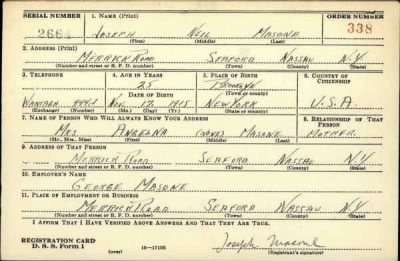 SERIAL NUMBER 1. NAME (Print) ORDER NUMBER
266 JOSEPH NEIL MASONE 338
(First) (Middle) (Last)
2. ADDRESS (Print)
MERRICK ROAD SEAFORD NASSAU N.Y.
(Number and street or R. F. D. number) (Town) (County) (State)
3. TELEPHONE 4. AGE IN YEARS 5. PLACE OF BIRTH 6. COUNTRY OF CITIZENSHIP
25 BROOKLYN
DATE OF BIRTH (Town or county)
WANTAGH NOV. 12 1915 NEW YORK U.S.A.
(Exchange) (Number) (Mo.) (Day) (Yr.) (State or country)
7. NAME OF PERSON WHO WILL ALWAYS KNOW YOUR ADDRESS 8. RELATIONSHIP OF THAT PERSON
MRS. ANGELINA (NONE) MASONE MOTHER
(Mr., Mrs., Miss) (First) (Middle) (Last)
9. ADDRESS OF THAT PERSON
MERRICK ROAD SEAFORD NASSAU N.Y.
(Number and street or R. F. D. number) (Town) (County) (State)
10. EMPLOYER'S NAME
GEORGE MASONE
11. PLACE OF EMPLOYMENT OR BUSINESS
MERRICK ROAD SEAFORD NASSAU N.Y.
(Number and street or R. F. D. number) (Town) (County) (State)
I AFFIRM THAT I HAVE VERIFIED ABOVE ANSWERS AND THAT THEY ARE TRUE.
REGISTRATION CARD
D. S. S. Form 1 (over) 16—17105 Joseph Masone
(Registrant's signature)